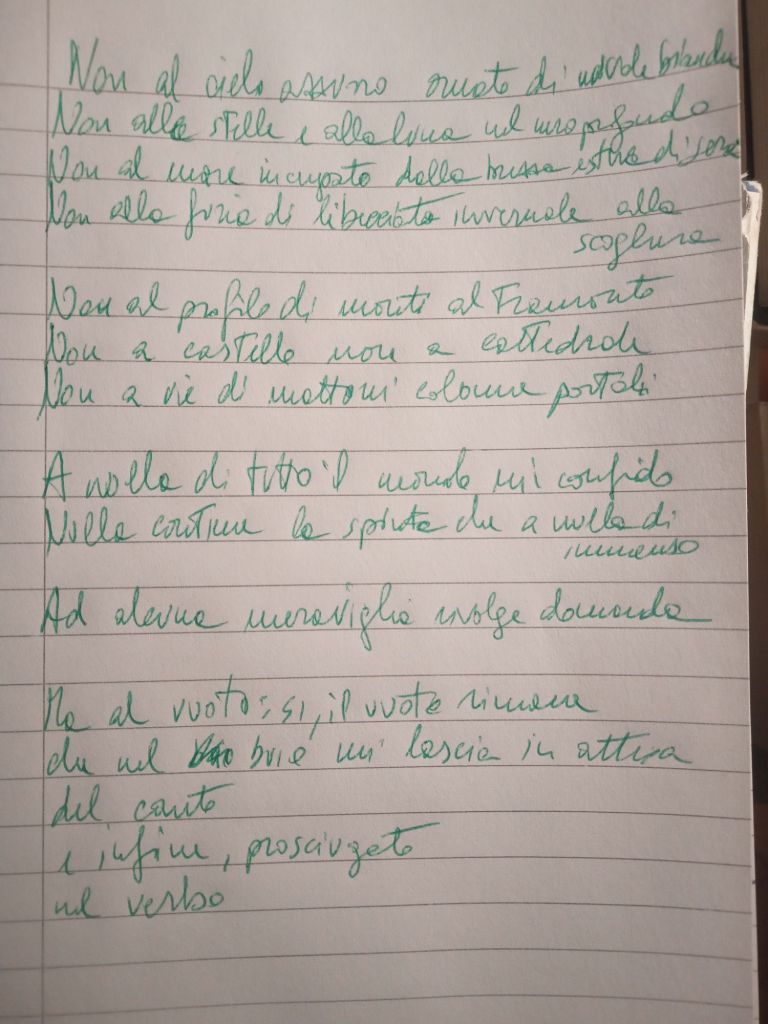 Non al cielo azzurro ornato di nuvole bianche
Non alle stelle e alla luna nel nero profondo
Non al mare increspato dalla brezza estiva di sera
Non alla furia di libecciata invernale alla
scogliera
Non al profilo di monti al Tramonto
Non a castello non a cattedrale
Non a vie di mattoni colonne portali
A nulla di tutto il mondo mi confido
Nulla contiene la spinta che a nulla di
immenso
Ad alcuna meraviglia volge domanda
Ma al vuoto: si, il vuoto rimane
che nel buio mi lascia in attesa
del canto
e infine, prosciugato
nel verbo